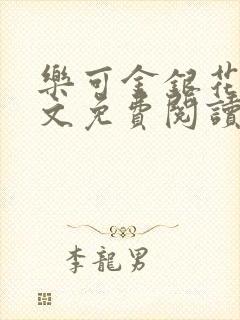 樂可金銀花
文免費閱讀
李龍男